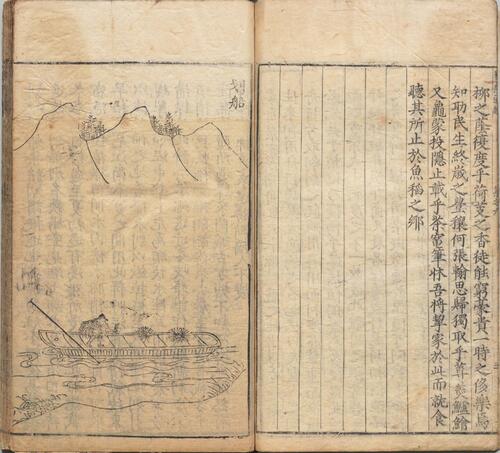 柳之蔭復度乎荷芰之香徒能窮豪貴一時之侈樂烏
知助民生終歲之豊穰何張翰思歸獨取乎蓴羹鱸鱠
又龜蒙投隱止載乎茶竈筆牀吾將挈家於此而就食
聽其所止於魚稻之鄉
划船